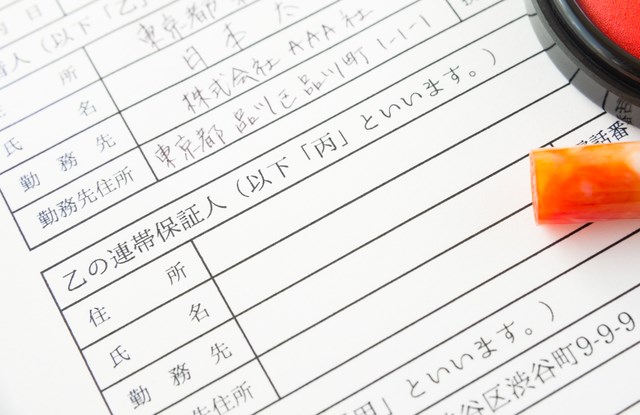 月 日
人(以下「乙」
住 所 東京都
氏 名 日本 太
勤 務 先 株式会社 AAA社
勤務先住所 東京都 品川区 品川町 1-1-1
乙の連帯保証人(以下「丙」といいます。)
住 所
氏 名
勤 務 先
先住所
」といいます。)
谷区渋谷町9-9-9
話番